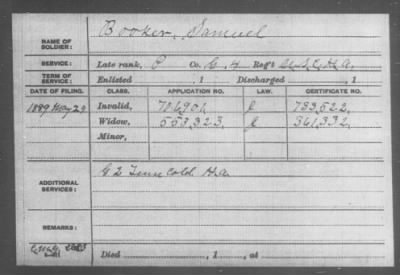 NAME OF SOLDIER: Booker, Samuel
SERVICE: Late rank, P Co. G. 4 Reg't U.S.C.H.A.
TERM OF SERVICE: Enlisted , 1 Discharged , 1
DATE OF FILING. CLASS. APPLICATION NO. LAW. CERTIFICATE NO.
1889 May 29 Invalid, 706901 783,522
Widow, 558,323 361,332
Minor,
ADDITIONAL SERVICES: G 2 Tenn Cold H.A.
REMARKS:
Died , 1 , at